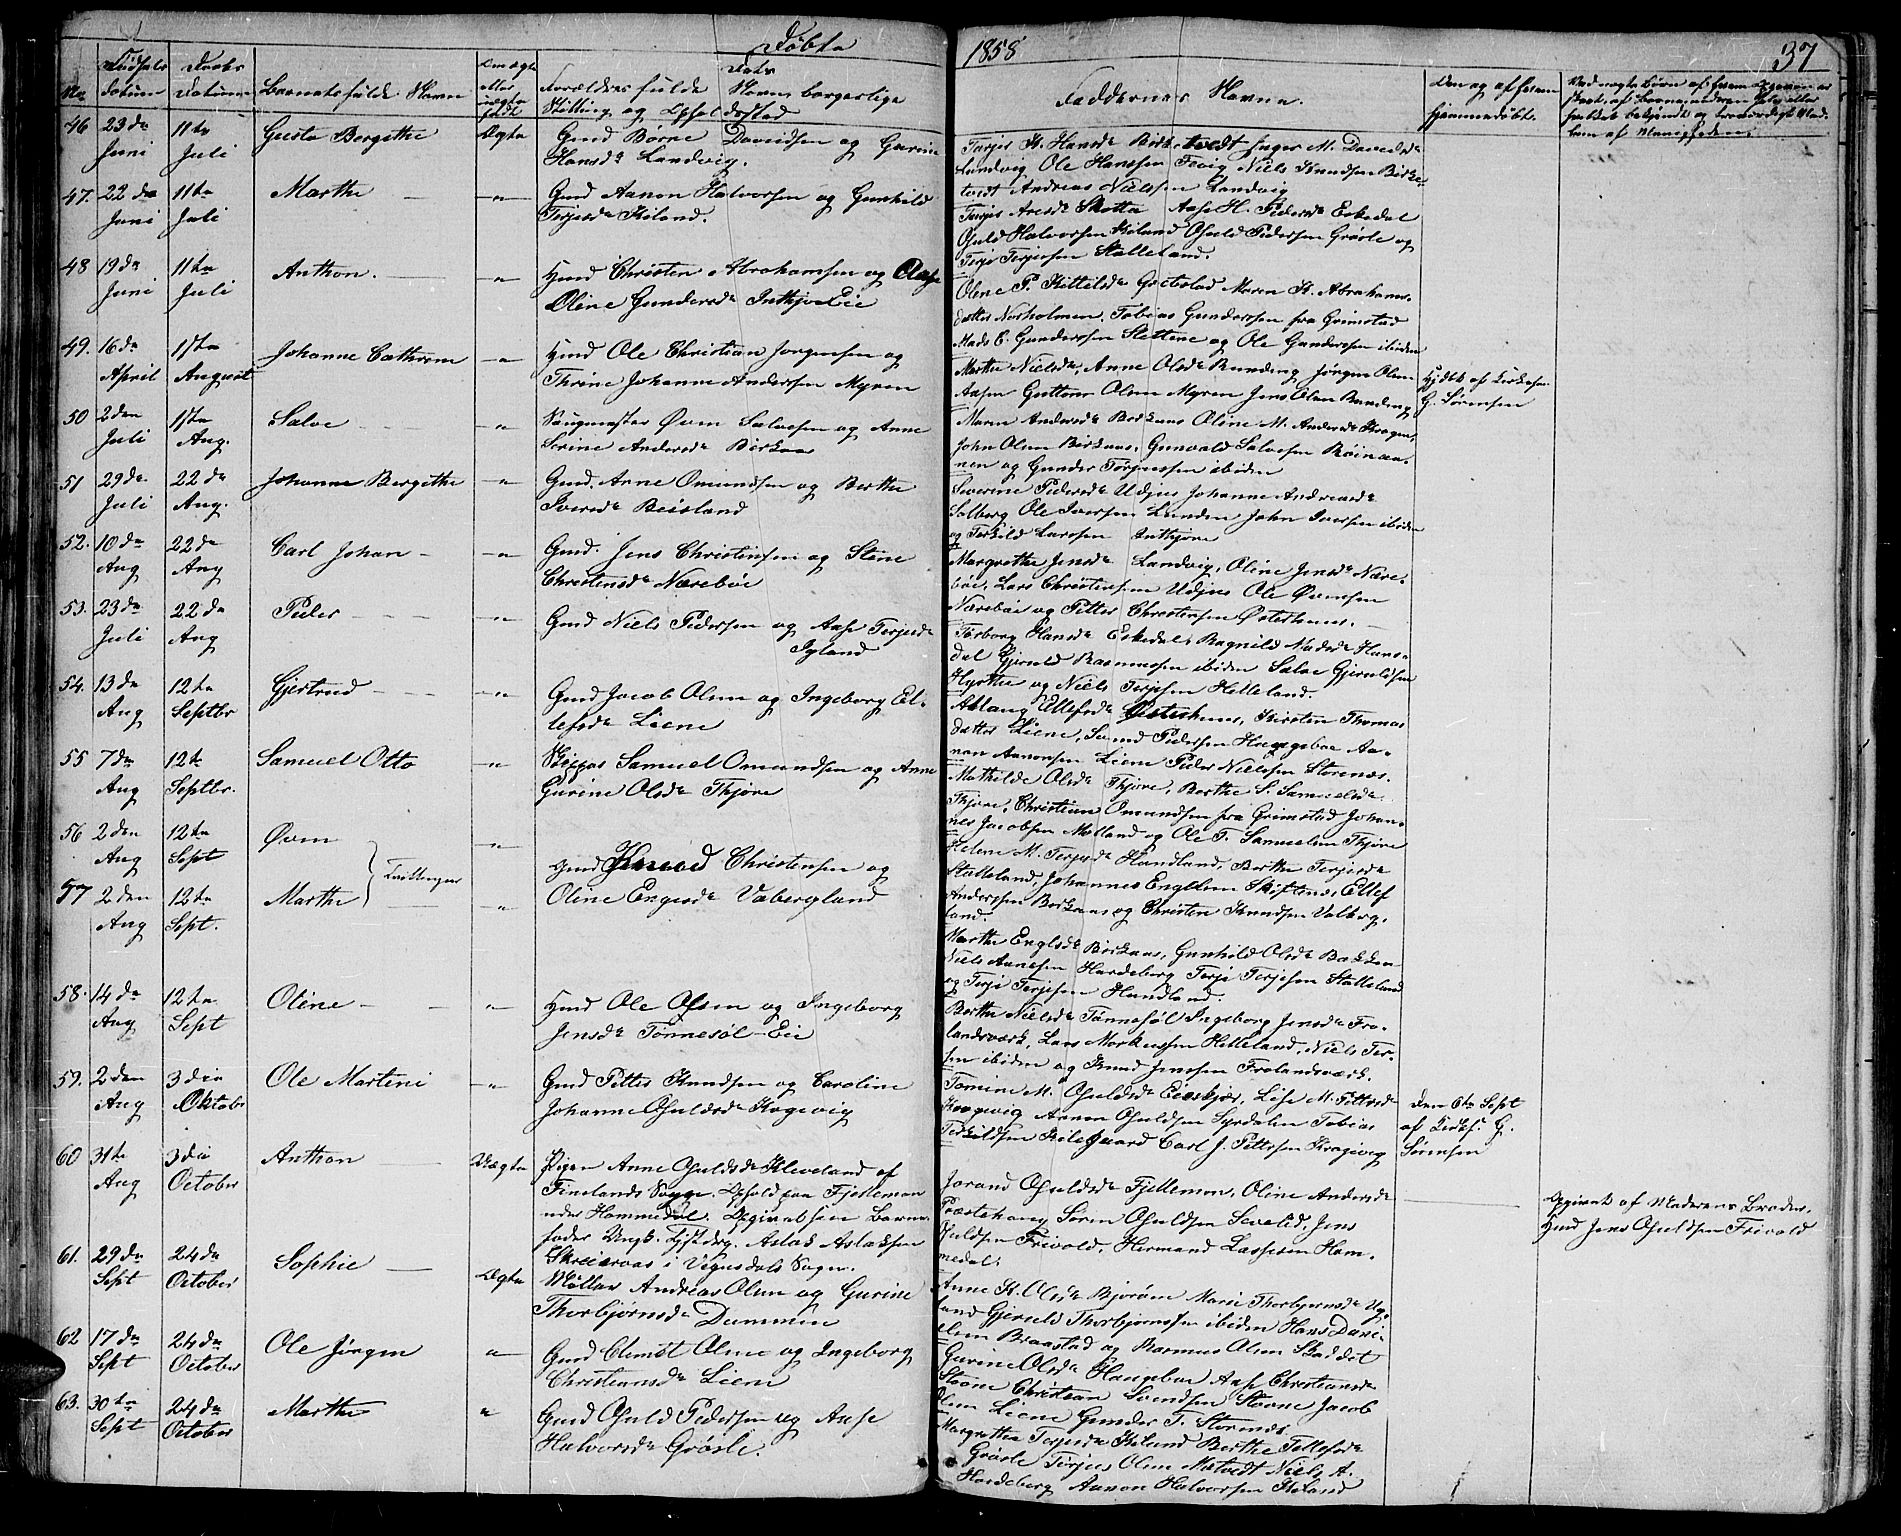 Døbte
1858
37
No
Fødsels Datum
Daabs Datum
Barnets fulde Navn
Om ægte eller uægte født
Forældres fulde Navn borgerlige Stilling og Opholdssted
Faddernes Navne.
46
23de Juni
11te Juli
Gusta Bergithe
Ægte
Gmd Børne Davidsen og Gurine
Hansdr Landvig.
Landvig Ole Hanssen Fevig Niels Knudsen Birke-
tvedt Andreas Nielsen Landvig
47.
22de Juni
11te Juli
Marthe
Gmd Aanon Halvorsen og Gunhild
Terjesdr Kiland.
Osuld Halvorsen Kiland Osuld Pedersen Grøsle og
Terje Terjessen Stalleland.
48
19de Juni
11te Juli
Anthon.
Hmd Christen Abrahamsen og
Oline Gundersdr Inthjøreie
Oline P. Kittilsdr Grebstad Maren K. Abrahams-
datter Norholmen. Tobias Gundersen fra Grimstad
Mads E. Gunderssen Slettene og Ole Gunderssen ibiden
49.
16de April
1ste August
Johanne Cathrine
Hmd Ole Christian Jørgensen og
Thrine Johanne Andersen Myren
Marthe Nielsdr, Anne Olsdr Runding Jørgen Olsen
Aasen Guttorm Olsen Myren Jens Olsen Runding
Hjdbt af Kirkesr.
G. Sørensen
50
2den Juli
1ste Aug.
Salve
Saugmester Øvm Salvesen og Anne
Serine Andersdr Birkaas
Maren Andersdr Berkaas Oline M. Andersdr
John Olsen Birkaas, Gunvald Salvesen Røinaa-
nen og Gunder Torjussen ibiden
51
29de Juli
22de Aug.
Johanne Bergithe
Gmd. Arne Omundsen og Berthe
Iversdr Beisland
Severine Pedersdr Udjus Johanne Andreasdr
Solberg Ole Iversen Lunden John Iversen ibiden
og Terkild Larssen Inthjøre
52.
10de Aug
22de Aug
Carl Johan
Gmd. Jens Christensen og Stine
Christensdr Nærebøe
Margrethe Jensdr Landvig, Oline Jensdr Nære-
bøe, Lars Christensen Udjus Ole Øvensen
Nærebøe og Petter Christensen Østerhuus.
53.
23de Juli
22de Aug
Peder
Gmd Niels Pedersen og Aase Terjesdr
Igland
Torborg Hansdr Eskedal, Ragnild Madsdr Hans-
dal Gjeruld Rasmussen ibiden Salve Gjeruldsen
og Niels Terjesen Helleland.
54.
13de Aug
12te Septbr
Gjertrud
Gmd Jacob Olsen og Ingeborg El-
lefsdr Liene
Aslaug Ellefsdr Østerhuus, Kirsten Thomas
datter Liene, Svend Pedersen Haugeboe Aa-
non Aanonsen Liene Peder Nielsen Storenæs.
55
7de Aug
12te Septbr.
Samuel Otto
Skipper Samuel Omundsen og Anne
Gurine Olsdr Thjøre
Mathilde Olsdr Thjøre, Berthe S. Samuelsdr
Thjøre, Christian Omundsen fra Grimstad Johan-
nes Jacobsen Molland og Ole T. Samuelsen Thjøre
56
2den Aug
12te Sept
Øvm
Tvillinger
Gmd Knud Christensen og
Oline Engesdr Vabergland
Helene M. Terjesdr Hundland, Berthe Terjesdr
Stalleland, Johannes Engelsen Skiftenes, Ellef
Anderssen Berkaas og Christen Knudsen Valberg-
land.
57
2den Aug
12te Sept.
Marthe
Marthe Englsdr Birkaas, Gunhild Olsdr Bakken
Niels Aanesen Hardeberg Terje Terjesen Stalleland
og Terje Terjesen Hundland.
58.
14de Aug
12te Sept
Oline
Hmd Ole Olsen og Ingeborg
Jensdr Tønnesøl-Eie
Berthe Nielsdr Tønnesøl Ingeborg Jensdr Fro-
landsværk, Lars Markussen Helleland, Niels Ter-
sen ibiden og Knud Jenssen Frolandsværk.
59.
2den Aug
3die Oktober
Ole Martini
Gmd Petter Knudsen og Caroline
Johanne Osuldsdr Kragevig
Tomine M. Osuldsdr Eieskjær, Lise M. Pettersdr
Kragevig Aanon Osuldsen Syrdalen Tobias
Terkildsen Kilegaard Carl J. Pettersen Kragevig
Den 6te Sept
af Kirkesr. G.
Sørensen
60
31te Aug
3die October
Anthon
Uægte
Pigen Anne Osuldsdr Kleveland af
Finelands Sogn. Ophold paa Fjellemon
under Hommedal. Opgivelsen Barne-
fader Ungk. Aslak Aslaksen
Skreieraas i Vegusdals Sogn.
Jorand Osuldsdr Fjellemon, Oline Andersdr
Præstehaug Søren Osuldsen Sevelid, Jens
Osuldsen Frivold, Hermand Lassesen Hom-
medal.
Opgivet af Moderens Broder,
Hmd Jens Osuldsen Frivold
61.
29de Sept
24de October
Sophie
Ægte
Møller Andreas Olsen og Gurine
Thorbjørnsdr Dammen
Anne K. Olsdr Bjoraen Marie Thorbjørnsdr Ug-
land Gjeruld Thorbjørnssen ibiden Hans Dani-
elsen Braastad og Rasmus Olsen Skaddet
62
17de Sept
24de October
Ole Jørgen
Gmd Clemet Olsen og Ingeborg
Christiansdr Liene
Gurine Olsdr Haugeboe Aase Christiansdr
Stoone Christian Svendsen Stoone Jacob
Olsen Liene Gunder T. Storenæs
63.
30te Sept
24de October
Marthe
Gmd Osuld Pedersen og Aase
Halvorsdr Grøsle.
Margrethe Terjesdr Kiland Berthe Tellefsdr
Grøsle Torjus Olsen Mølvedt Niels A.
Hardeberg Aanon Halvorsen Kiland